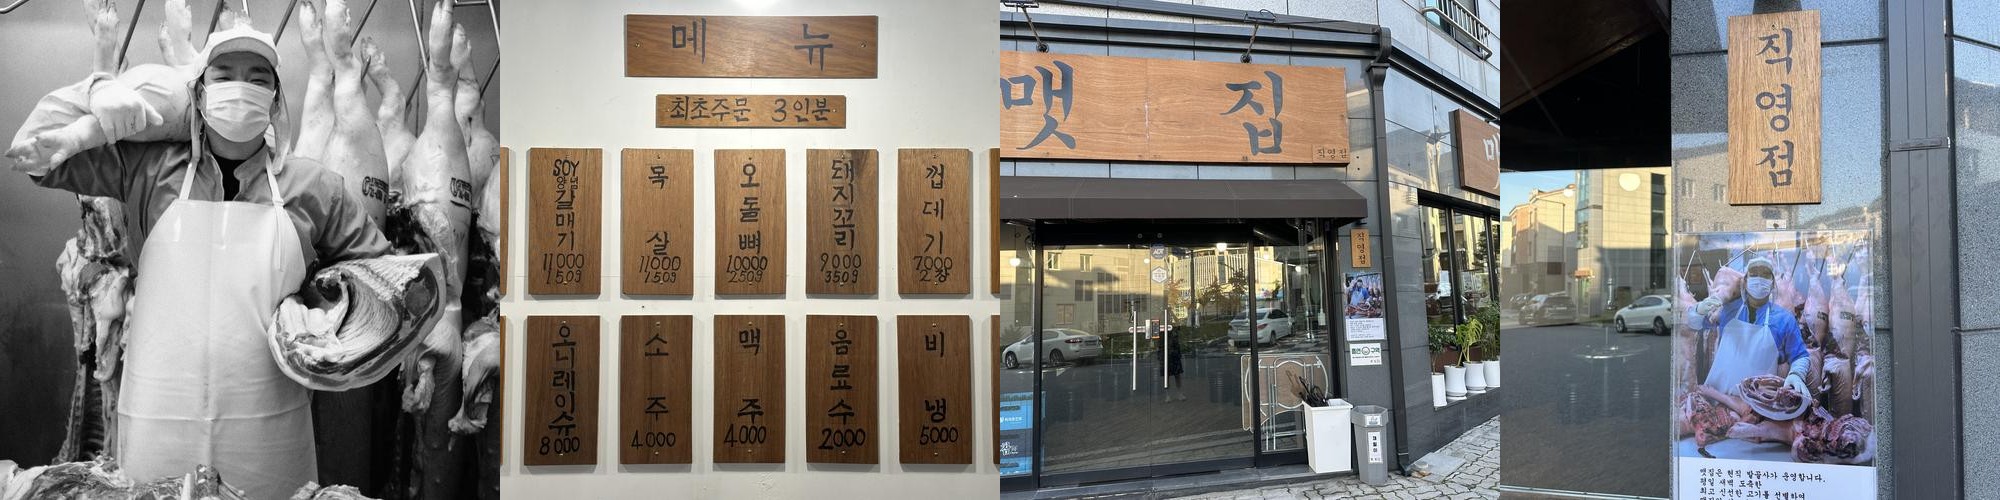 메뉴
최초주문 3인분
SOY
양념
갈매기
11000
150g
목살
11000
150g
오돌뼈
10000
250g
돼지꼬리
9000
350g
껍데기
7000
2장
오니레이슈
8000
소주
4000
맥주
4000
음료수
2000
비냉
5000
맷집
직영점
맷
직영점
흡연구역
직영점
맷집은 현직 발골사가 운영합니다.
평일 새벽 도축한
최고 신선한 고기를 선별하여